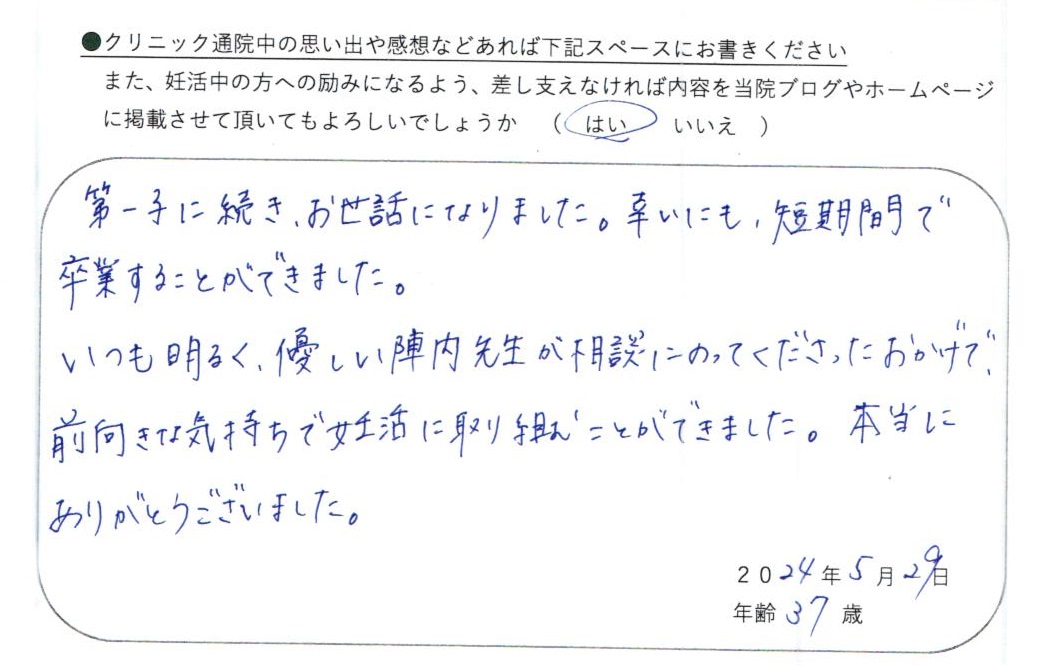 ●クリニック通院中の思い出や感想などあれば下記スペースにお書きください
また、妊活中の方への励みになるよう、差し支えなければ内容を当院ブログやホームページ
に掲載させて頂いてもよろしいでしょうか （ はい いいえ ）
第一子に続き、お世話になりました。幸いにも、短期間で
卒業することができました。
いつも明るく、優しい陣内先生が相談にのってくださったおかげで、
前向きな気持ちで妊活に取り組むことができました。本当に
ありがとうございました。
2024年5月29日
年齢 37 歳